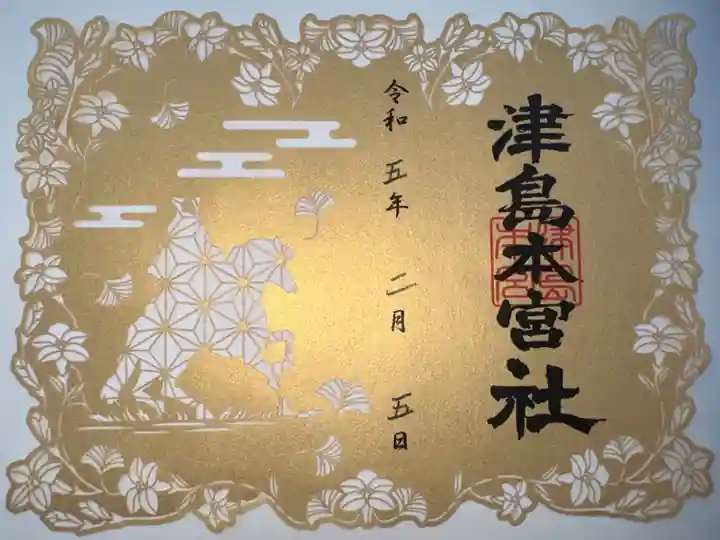 津島本宮社
令和五年二月五日